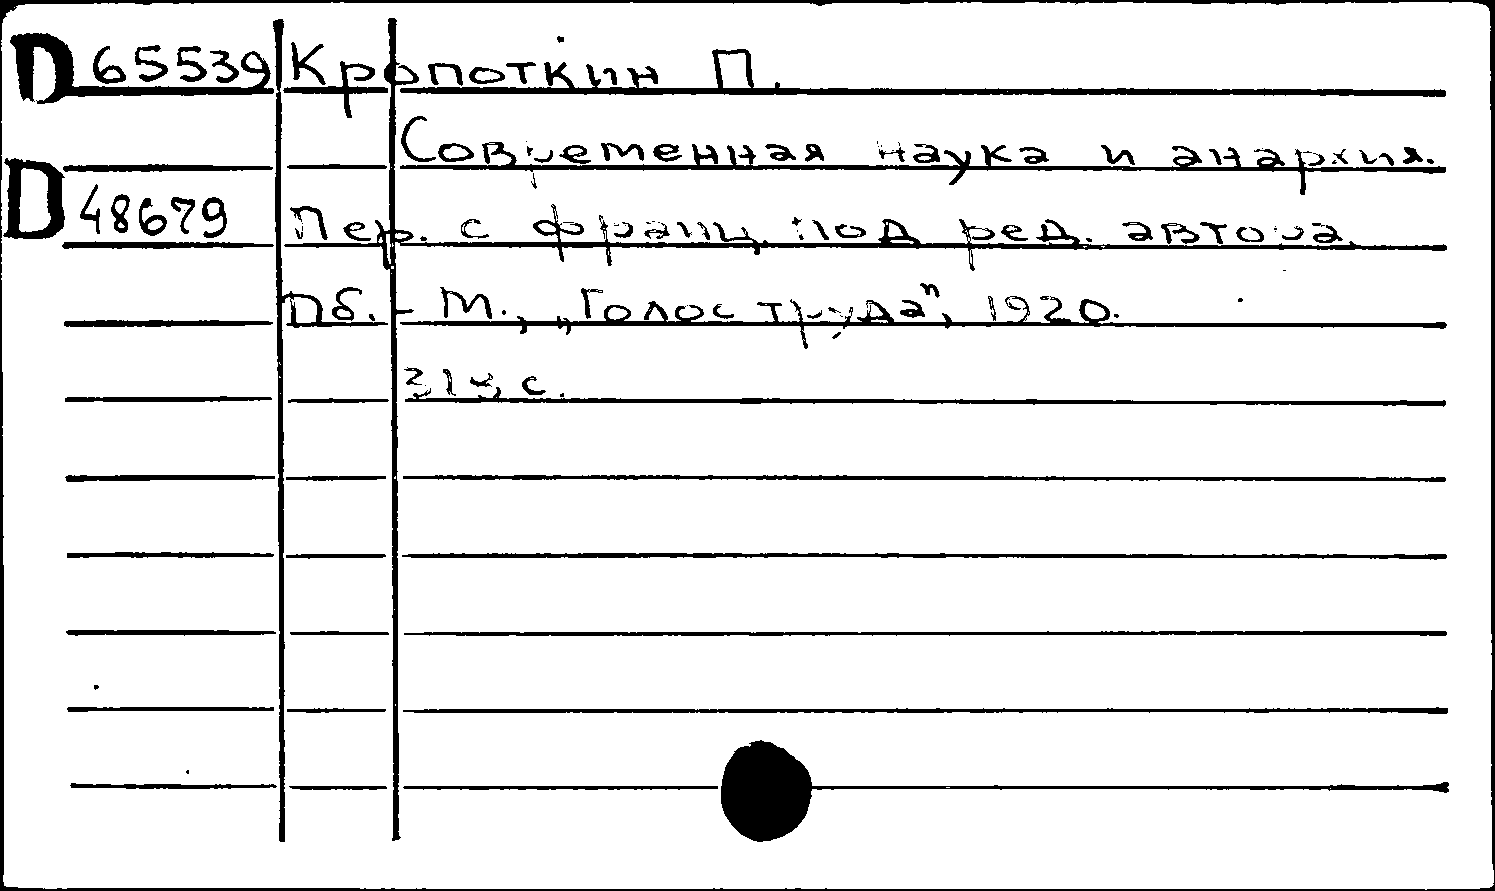 D 65539 Кропоткин П.
Современная наука и анархия.
D 48679 Пер. с франц. под ред. автора.
Пб. - М., „Голос труда", 1920.
с.